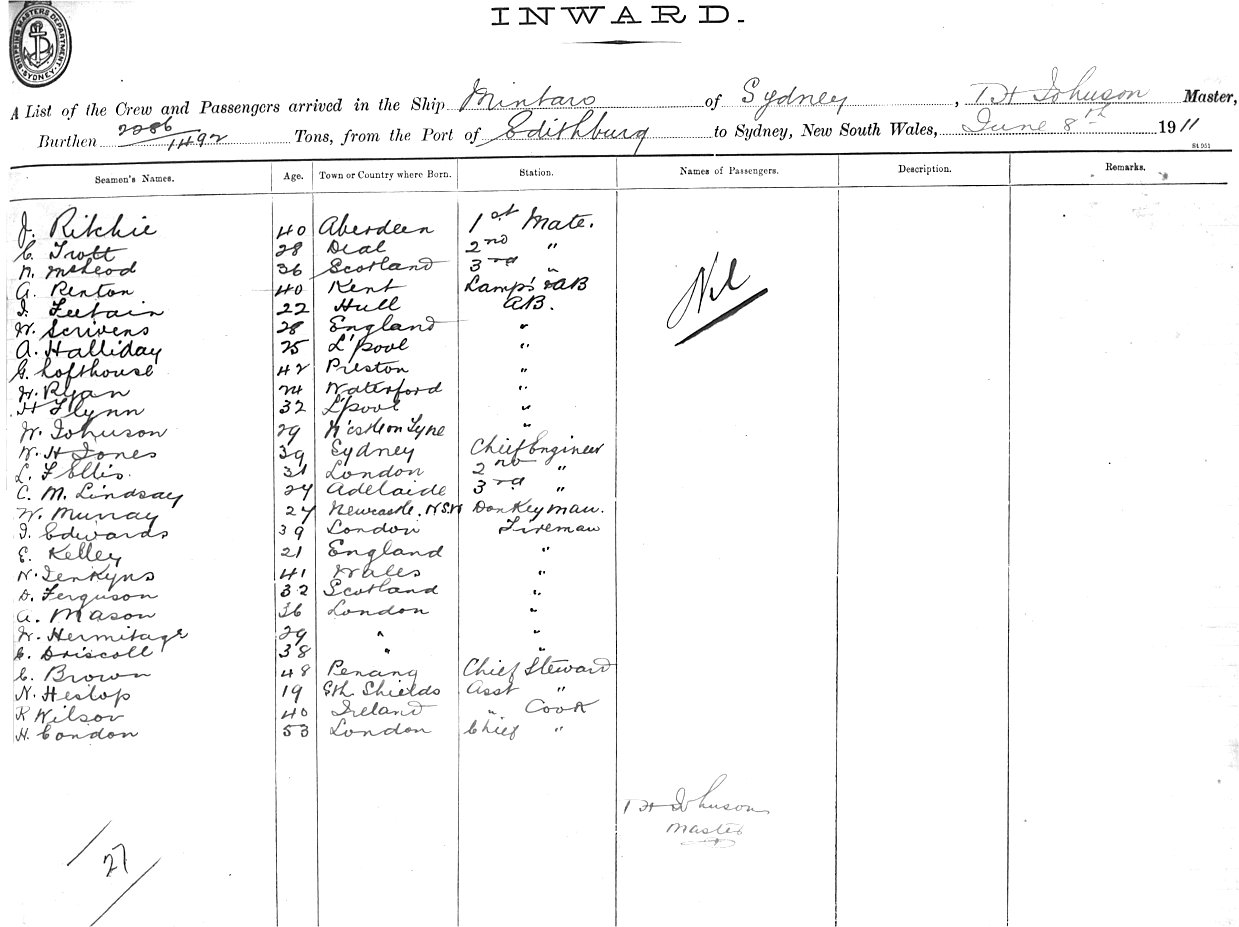 SHIPPING MASTERS DEPARTMENT. SYDNEY.
INWARD.
A List of the Crew and Passengers arrived in the Ship Mintaro of Sydney, T H Johnson Master,
Burthen 2286/1492 Tons, from the Port of Edithburg to Sydney, New South Wales, June 8th 1911
St 951
Seamen's Names. Age. Town or Country where Born. Station. Names of Passengers. Description. Remarks.
J. Ritchie 40 Aberdeen 1st Mate.
C. Trott 28 Deal 2nd "
N. McLeod 36 Scotland 3rd "
G. Renton 40 Kent Lamps & AB
Nil
22 Hull AB.
W. Scrivens 28 England "
A. Halliday 25 L'pool "
G. Lofthouse 42 Preston "
W. Ryan 24 Waterford "
H Flynn 32 L'pool "
W. Johnson 29 N'castle on Tyne "
W. H Jones 39 Sydney Chief Engineer
L. F Ellis. 31 London 2nd "
C. M. Lindsay 24 Adelaide 3rd "
W. Murray 24 Newcastle, NSW Donkeyman.
J. Edwards 39 London Fireman
E. Kelley 21 England "
N. Jenkyns 41 Wales "
D. Ferguson 32 Scotland "
A. Mason 36 London "
W. Hermitage 29 " "
C. Driscoll 38 " "
C. Brown 48 Penang Chief Steward
N. Heslop 19 Sth Shields Asst "
R Wilson 40 Ireland " Cook
H. Condon 53 London Chief "
T H Johnson
Master
27